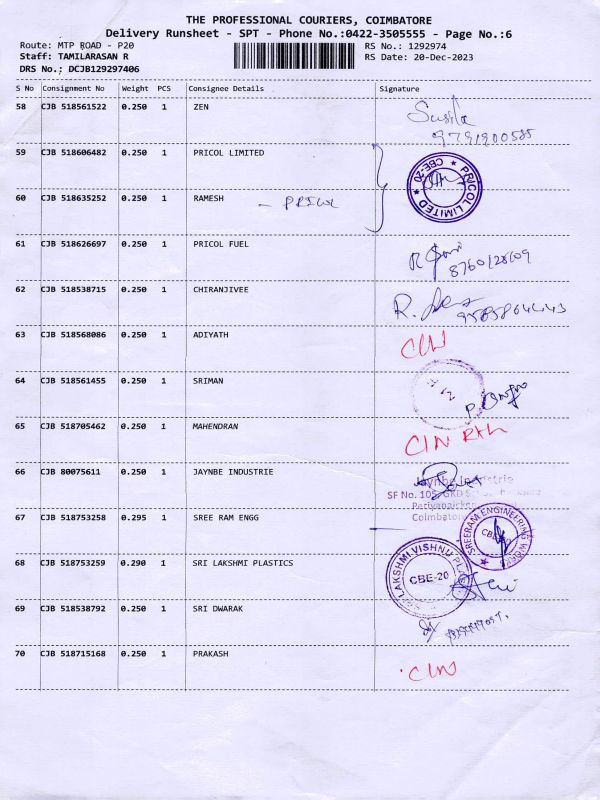 THE PROFESSIONAL COURIERS, COIMBATORE
Delivery Runsheet - SPT - Phone No.:0422-3505555 - Page No.:6
Route: MTP ROAD - P20 RS No.: 1292974
Staff: TAMILARASAN R RS Date: 20-Dec-2023
DRS No.: DCJB129297406
S No Consignment No Weight PCS Consignee Details Signature
58 CJB 518561522 0.250 1 ZEN
9791900585
59 CJB 518606482 0.250 1 PRICOL LIMITED
PRICOL LIMITED ★ CBE-20 ★
60 CJB 518635252 0.250 1 RAMESH - PRICOL
61 CJB 518626697 0.250 1 PRICOL FUEL
62 CJB 518538715 0.250 1 CHIRANJIVEE
63 CJB 518568086 0.250 1 ADIYATH
64 CJB 518561455 0.250 1 SRIMAN
65 CJB 518705462 0.250 1 MAHENDRAN
66 CJB 80075611 0.250 1 JAYNBE INDUSTRIE
Jaynbe Industrie
SF No. 105, GKD
Periyanaicken
Coimbatore
67 CJB 518753258 0.295 1 SREE RAM ENGG
SREERAM ENGINEERING WORKS ★ CBE-20
68 CJB 518753259 0.290 1 SRI LAKSHMI PLASTICS
LAKSHMI VISHNU CBE-20
69 CJB 518538792 0.250 1 SRI DWARAK
70 CJB 518715168 0.250 1 PRAKASH